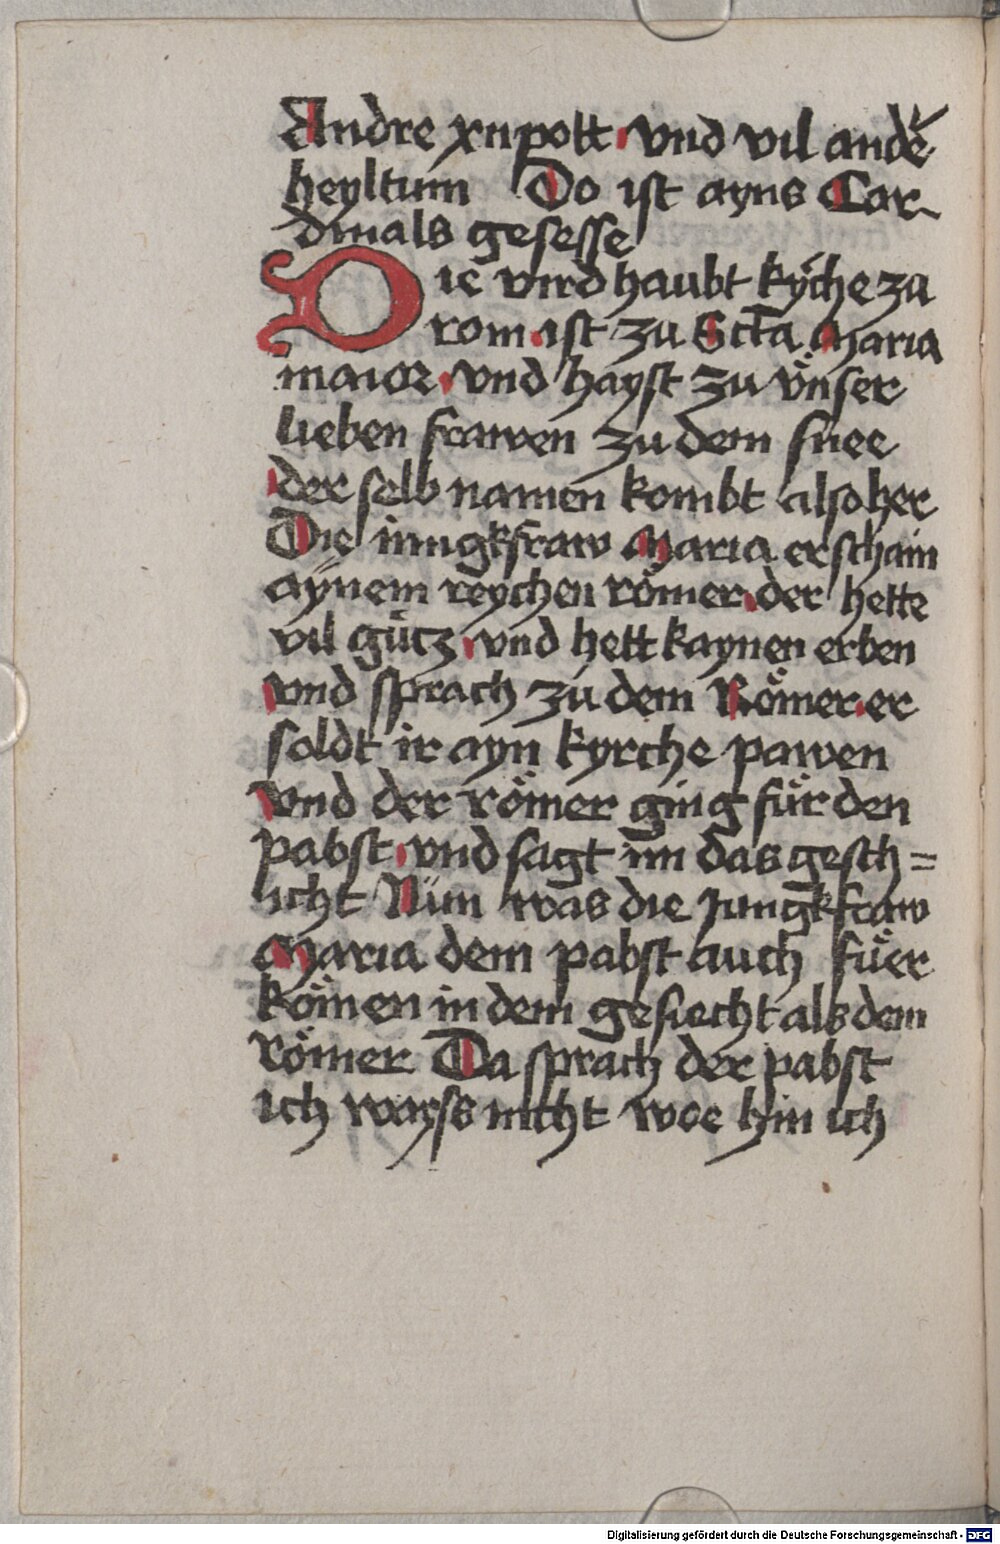 Andre xijpott vnd vil andeʳ
heyltum Do ist ayns Car-
dinals gesesse
Die vird haubt kyͤche zu
rom ist zu Scta Maria
maior vnd hayst zu vͤnser
lieben frawen zu dem snee
der selb namen kombt also her
Die iungkfraw Maria erschain
aynem reychen römer der hette
vil guͤtz vnd hett kaynen erben
vnd sprach zu dem Römer er
soldt ir ayn kyrche pawen
vnd der römer ging füͤr den
pabst vnd sagt im das gesch=
icht Nün was die Jungkfraw
Maria dem pabst auch füͤr
kömen in dem gesiecht als dem
Römer Da sprach der pabst
ich wayss nicht woe hin ich
Digitalisierung gefördert durch die Deutsche Forschungsgemeinschaft - DFG